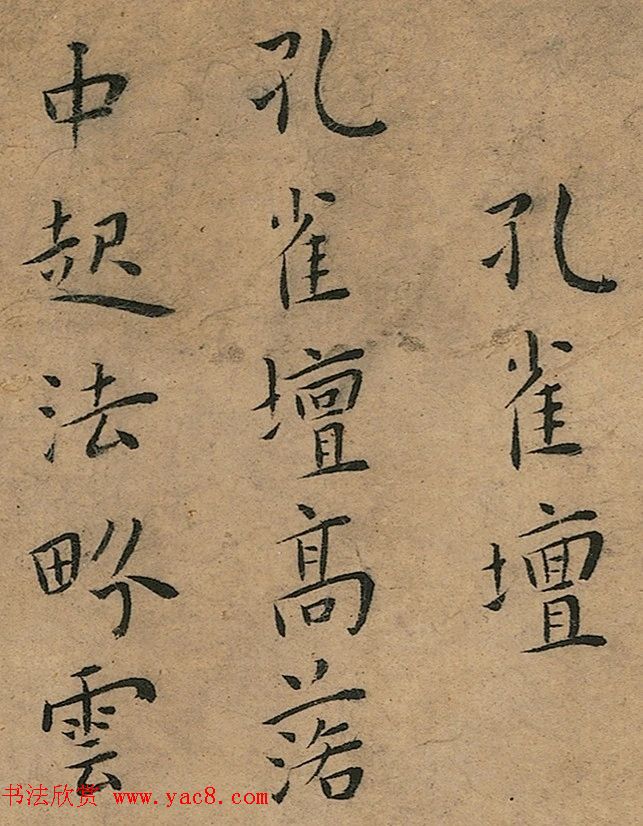 孔雀壇
孔雀壇高落
中起法畍雲
书法欣赏 www.yac8.com